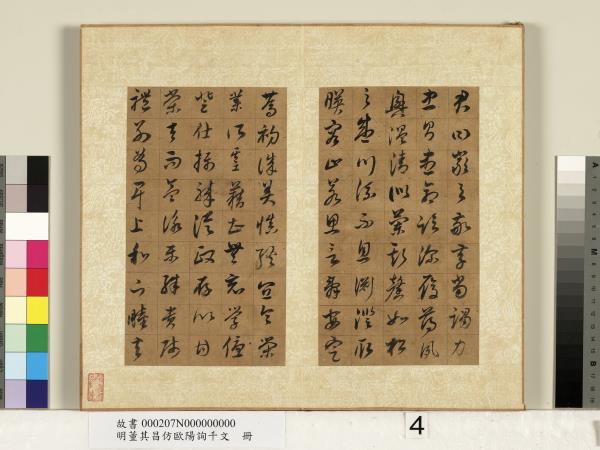 君曰嚴與敬孝當竭力
忠則盡命臨深履薄夙
興溫凊似蘭斯馨如松
之盛川流不息淵澄取
映容止若思言辭安定
篤初誠美慎終宜令榮
業所基藉甚無竟學優
登仕攝職從政存以甘
棠去而益詠樂殊貴賤
禮別尊卑上和下睦夫
故書 000207N000000000
明董其昌仿歐陽詢千文 冊
4